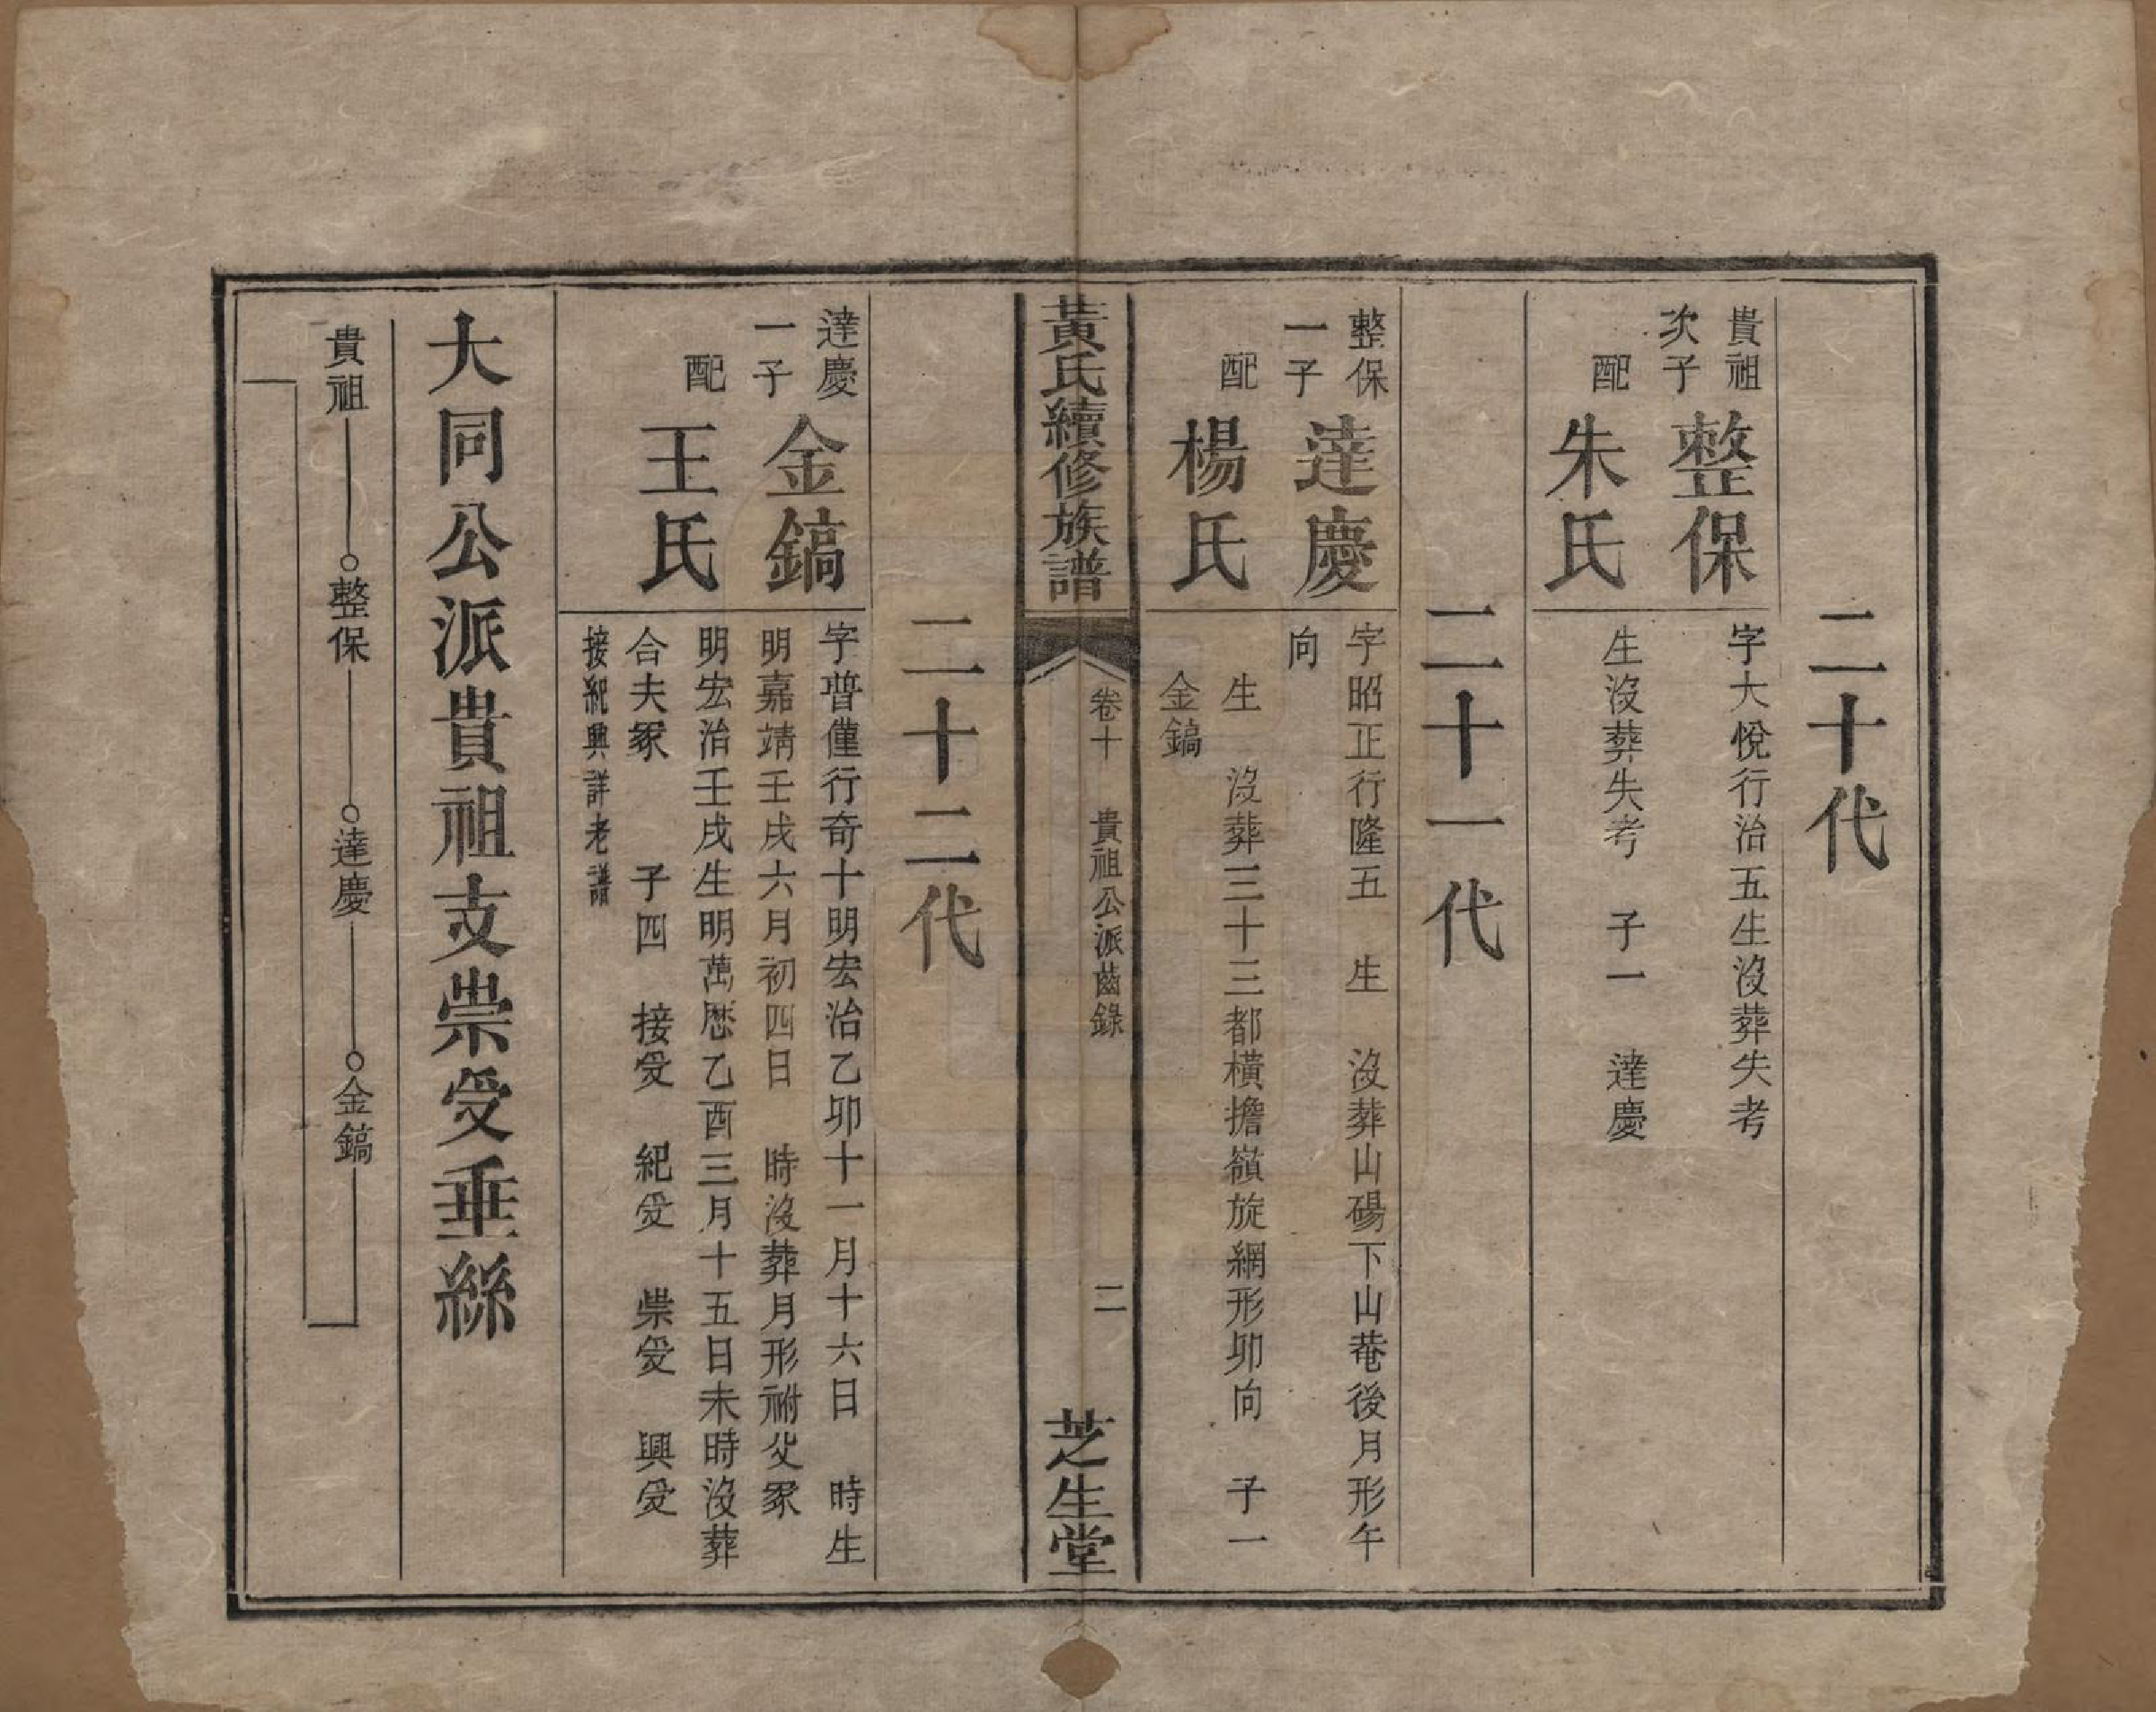 二十代
貴祖
次子
整保
字大悅行治五生沒葬失考
配
朱氏
生沒葬失考　子一　達慶
二十一代
整保
一子
達慶
字昭正行隆五　生　沒葬山碭下山菴後月形午
向
配
楊氏
生　沒葬三十三都橫擔嶺旋網形卯向　子一
金鎬
黃氏續修族譜
卷十　貴祖公派齒錄
二
芝生堂
二十二代
達慶
一子
金鎬
字普僅行奇十明宏治乙卯十一月十六日　時生
明嘉靖壬戌六月初四日　時沒葬月形祔父冢
配
王氏
明宏治壬戌生明萬歷乙酉三月十五日未時沒葬
合夫冢　子四　接受　紀受　崇受　興受
接紀興詳老譜
大同公派貴祖支崇受垂絲
貴祖　整保　達慶　金鎬